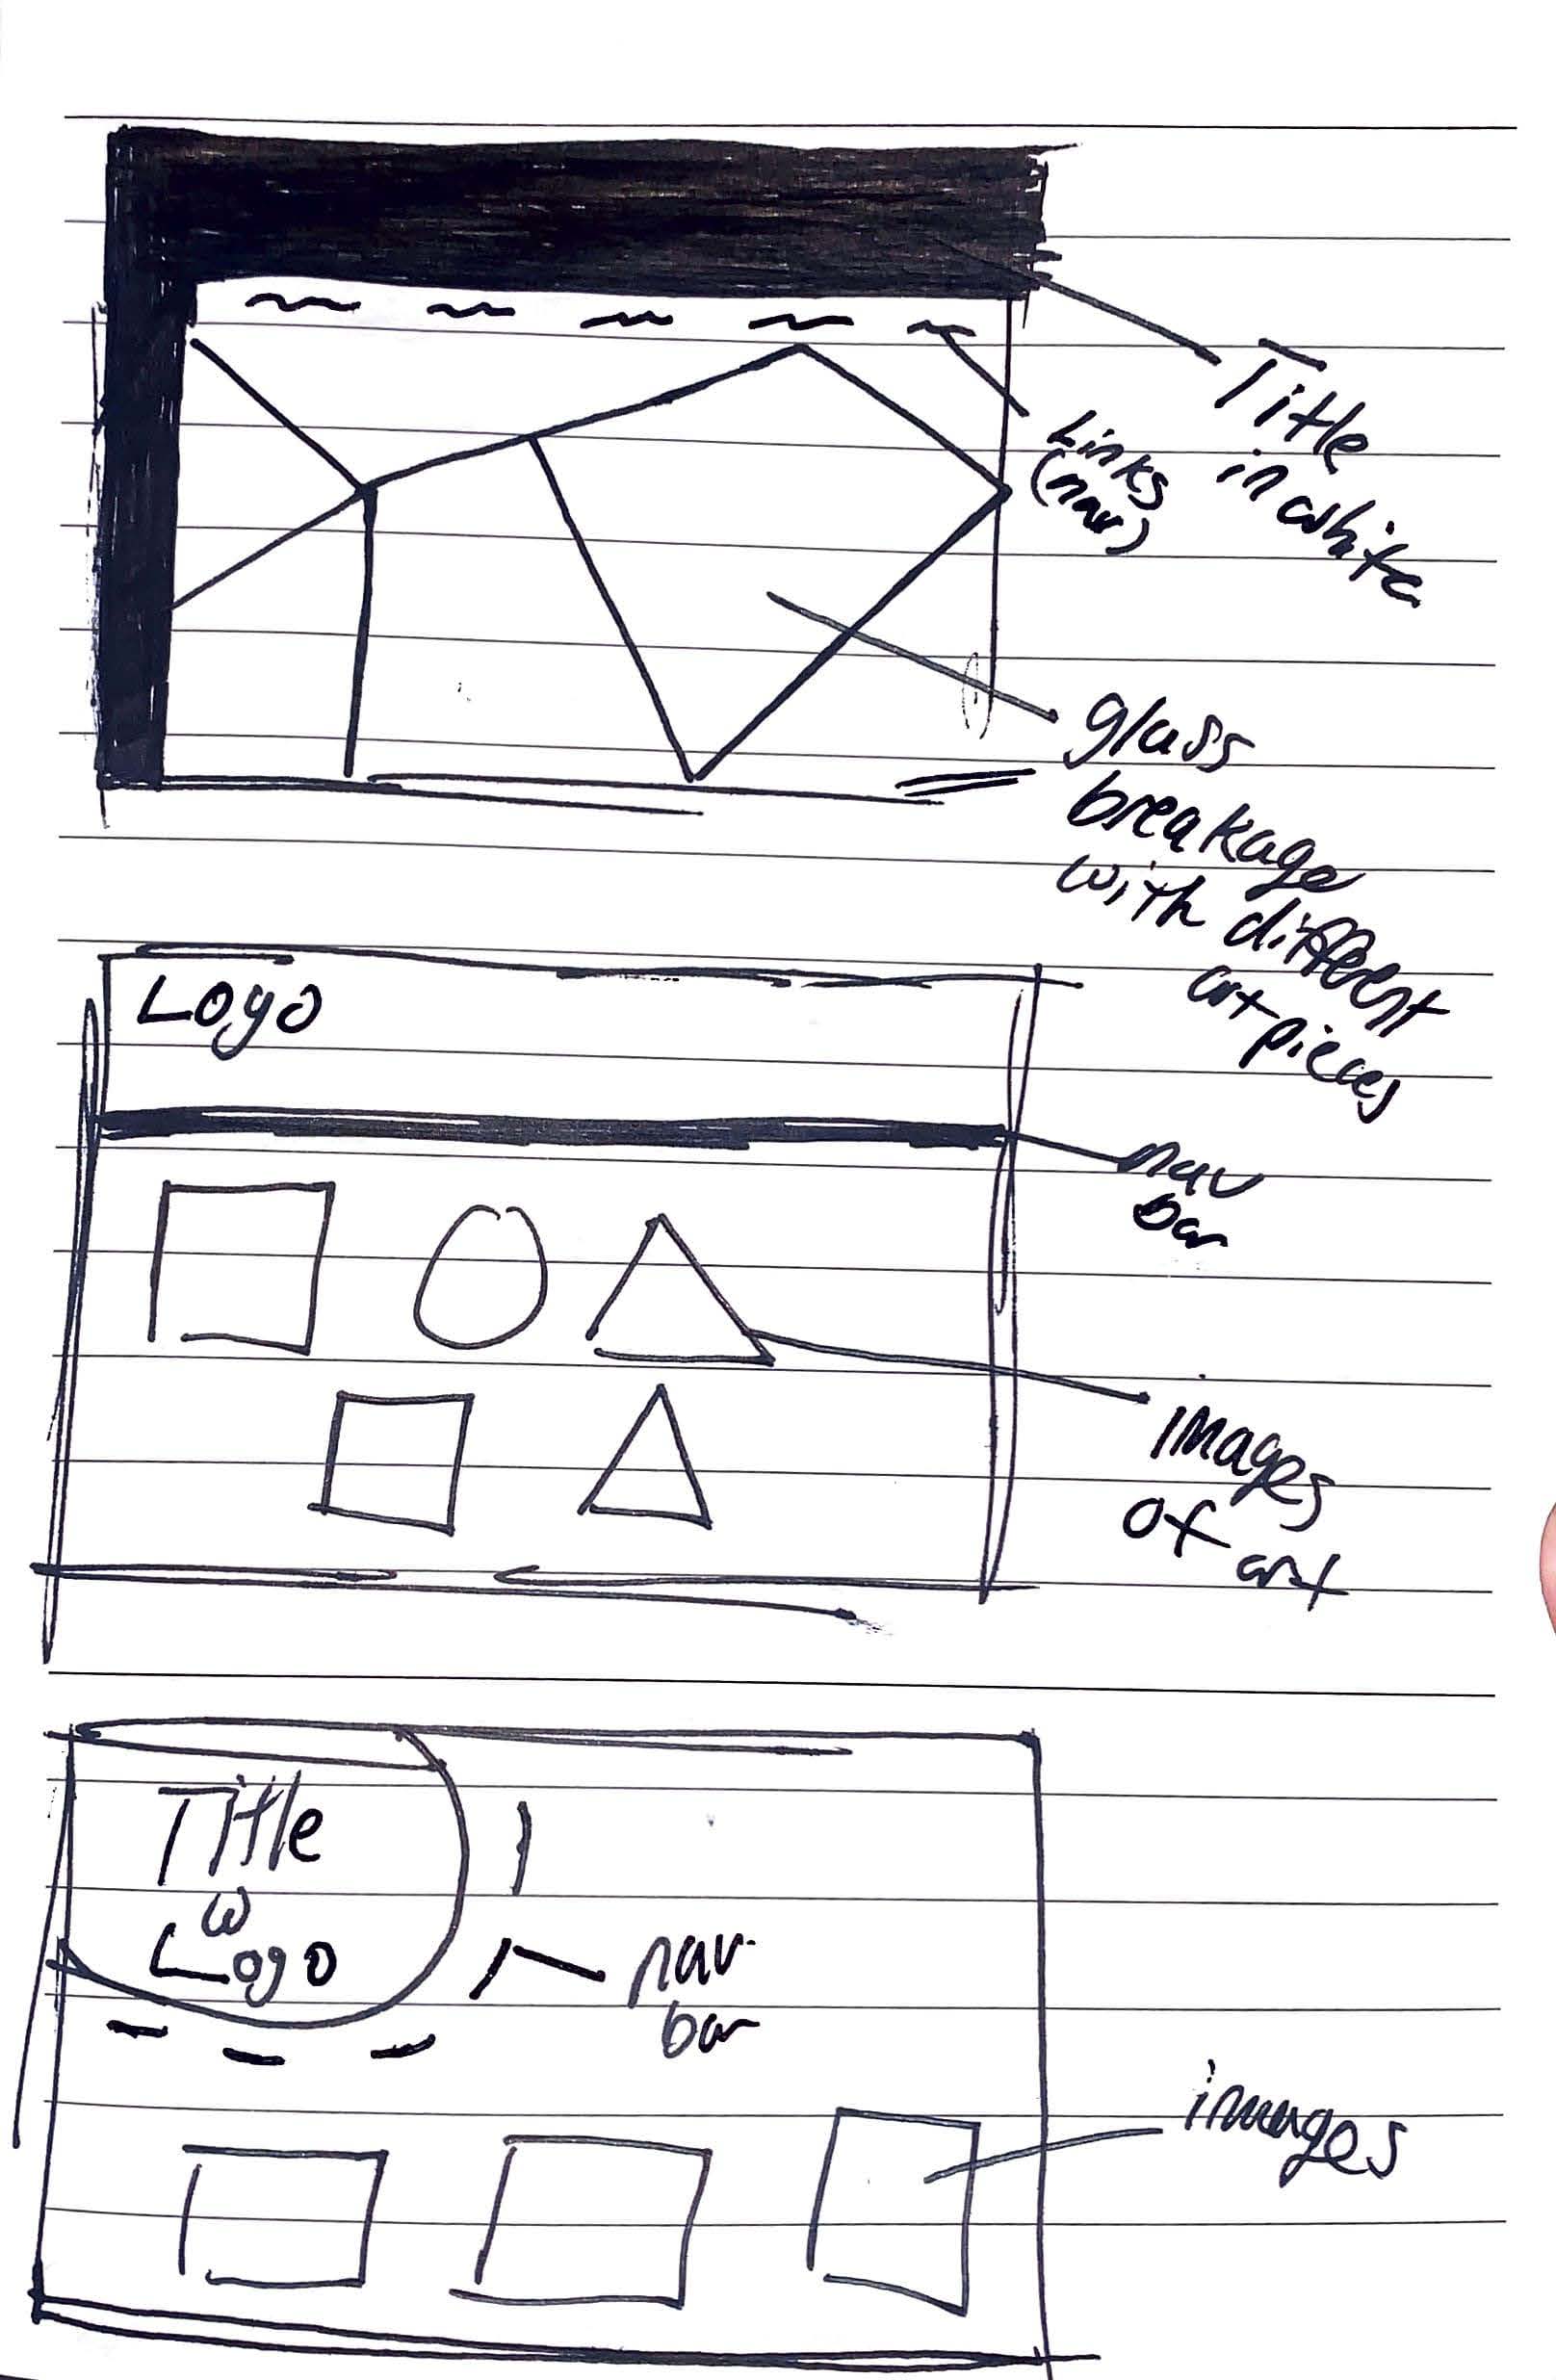 Title
in white
Links
(nav)
glass
breakage
with different
art pieces
Logo
nav
bar
images
of art
Title
w
Logo
nav
bar
images